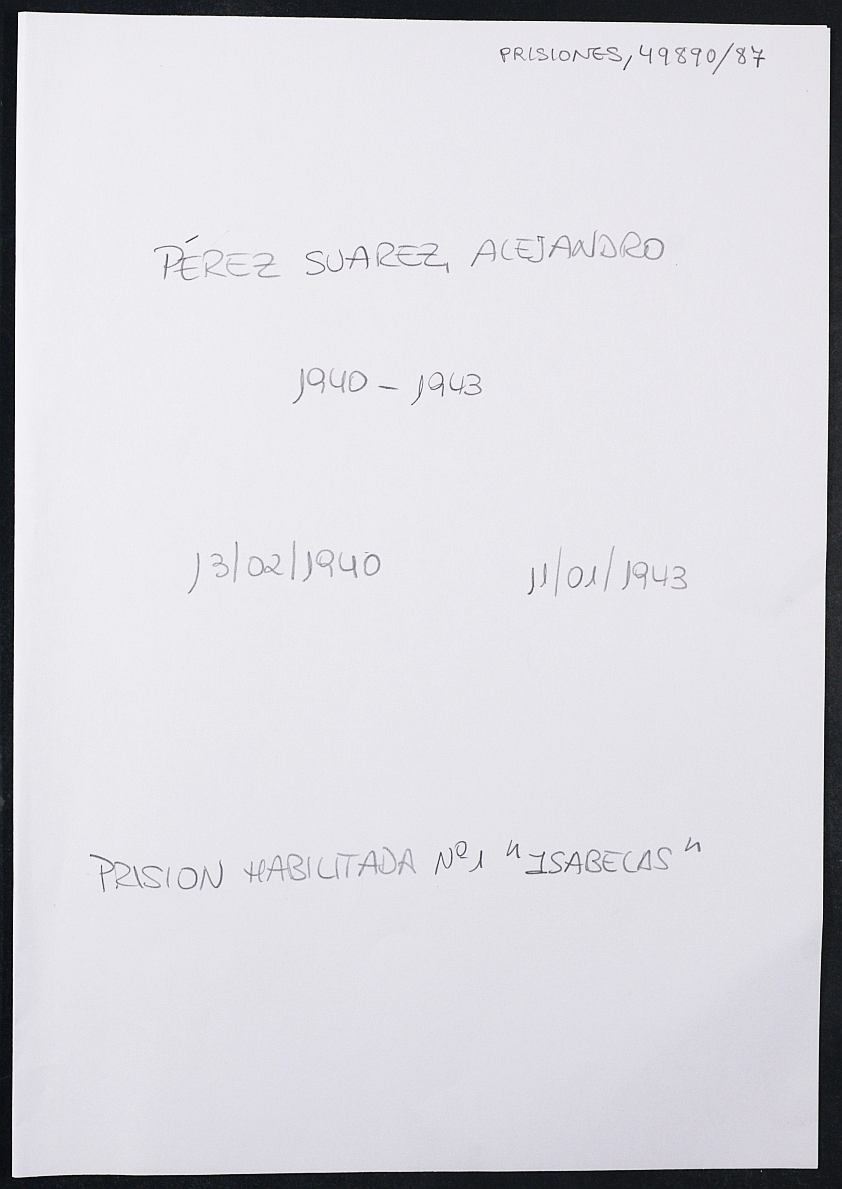 PRISIONES, 49890/87
PÉREZ SUAREZ, ALEJANDRO
1940 - 1943
13/02/1940 11/01/1943
PRISION HABILITADA Nº1 "ISABELAS"